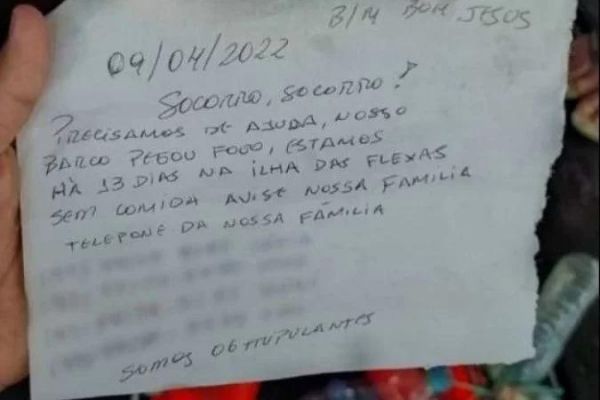 B/M BOM JESUS
09/04/2022
SOCORRO, SOCORRO!
PRECISAMOS DE AJUDA, NOSSO
BARCO PEGOU FOGO, ESTAMOS
HÀ 13 DIAS NA ILHA DAS FLEXAS
SEM COMIDA AVISE NOSSA FAMILIA
TELEPONE DA NOSSA FÃMILIA
SOMOS 06 TRIPULANTES